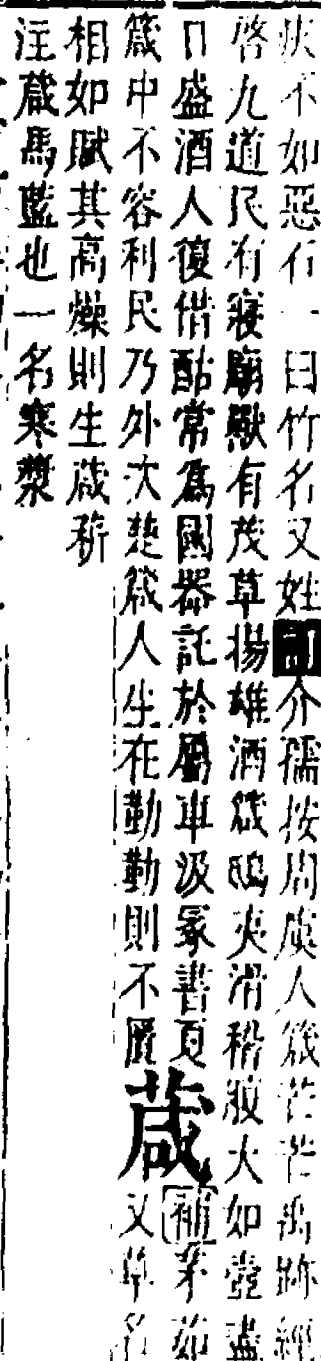 疾不如惡石一曰竹名又姓訂介孺按周虞人箴芒芒禹跡經
啓九道民有寢廟獸有茂草揚雄酒箴鴟夷滑稽腹大如壺盡
日盛酒人復借酤常爲國器託於屬車汲冢書夏
箴中不容利民乃外次楚箴人生在勤勤則不匱
葴
補茅茹
又草名
相如賦其高燥則生葴菥
注葴馬藍也一名寒漿